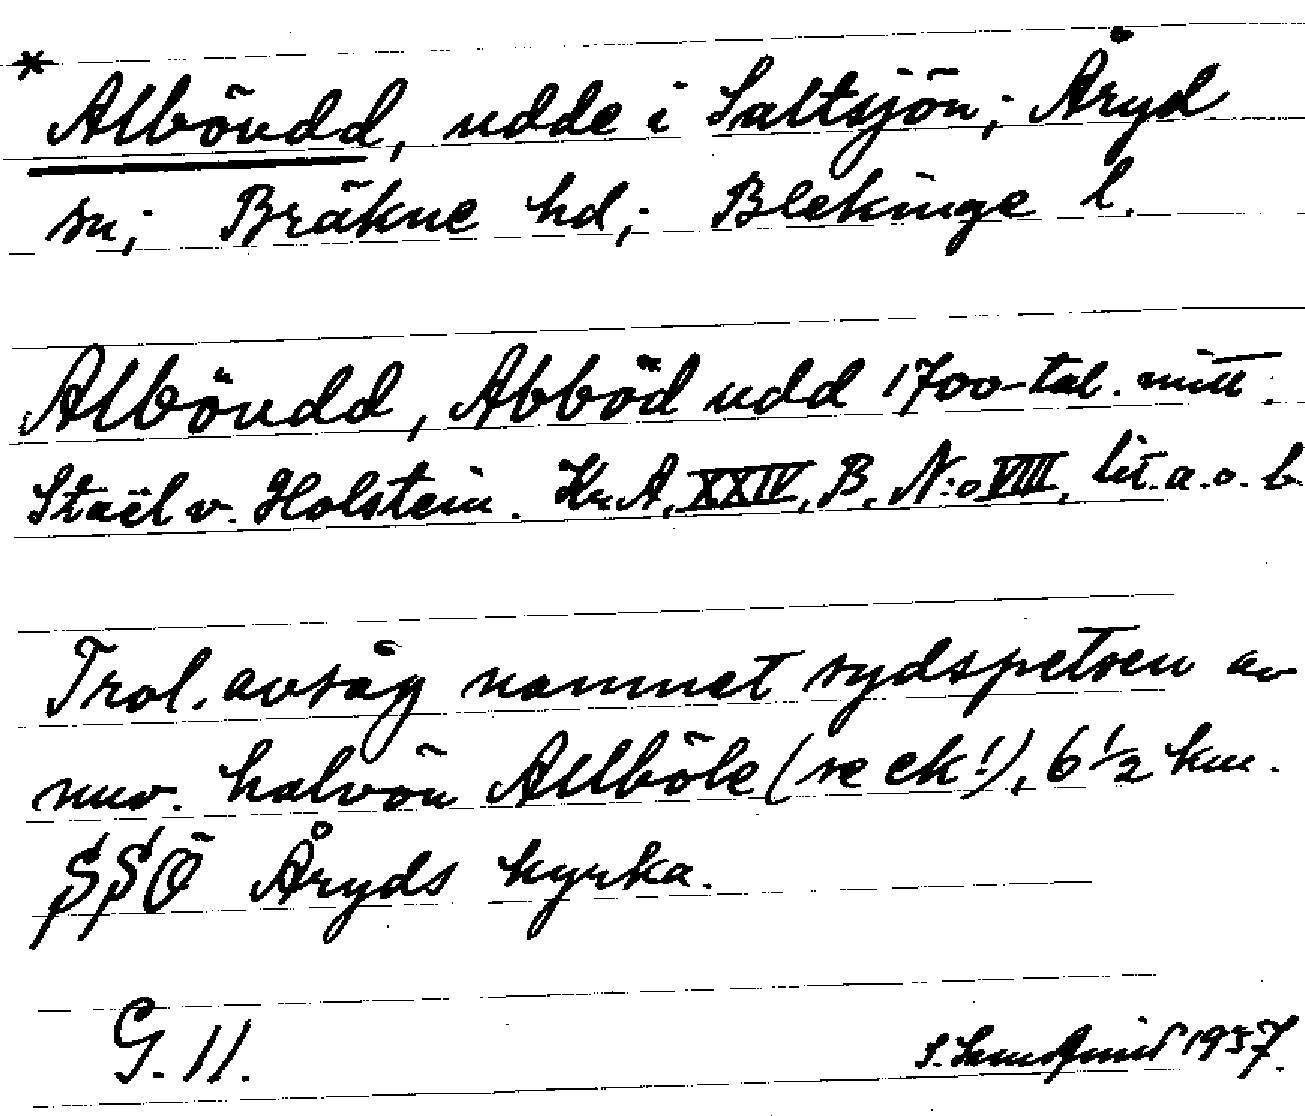 * Alböudd, udde i Saltsjön; Åryd
sn; Bräkne hd; Blekinge l.
Alböudd, Abböd udd 1700-tal. mitt.
Staël v. Holstein. Kr.A, XXIV, B. N:o VIII, lit. a. o. b.
Trol. avsåg namnet sydspetsen av
nuv. halvön Allböle (se ek!), 6 1/2 km.
SSÖ Åryds kyrka.
G. 11.
S. 1957.